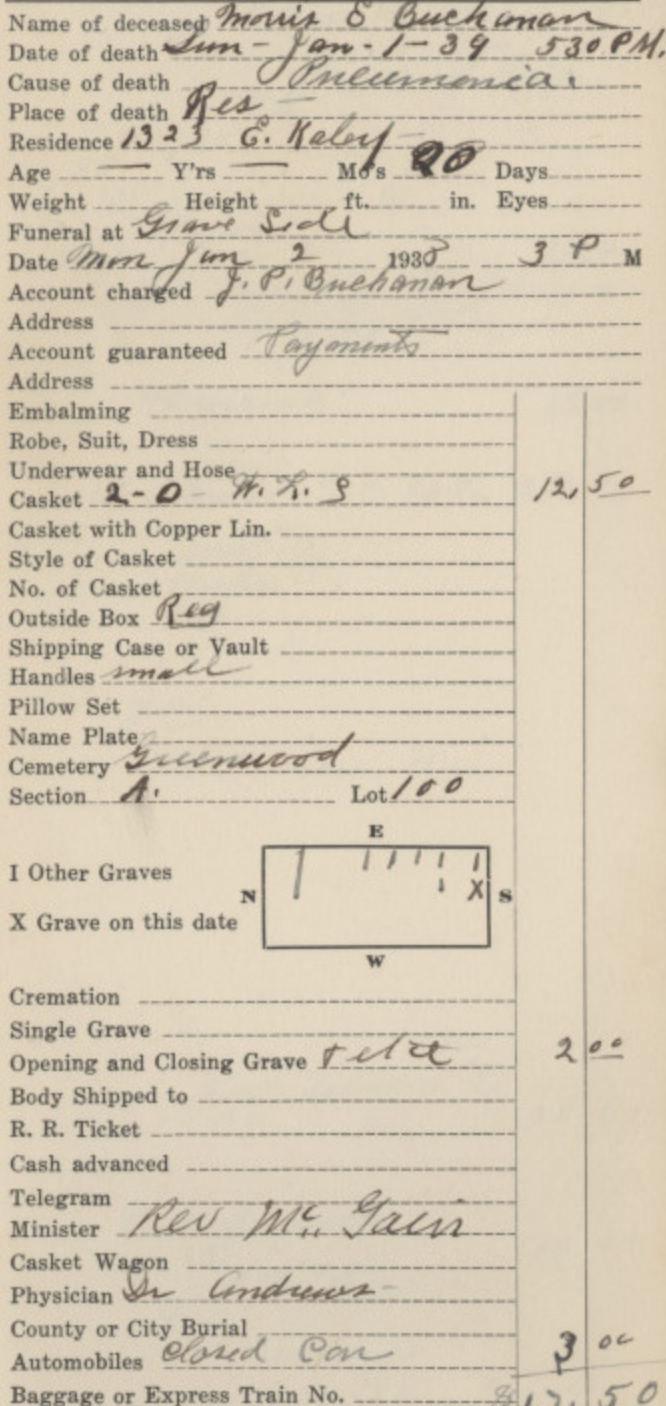 Name of deceased Morris E Buchanan
Date of death Sun - Jan - 1 - 39 530 P.M.
Cause of death Pneumonia.
Place of death Res -
Residence 1323 E. Kaley -
Age — Y'rs — Mo's 20 Days
Weight Height ft. in. Eyes
Funeral at Grave Side
Date Mon Jan 2 1938 3 P M
Account charged J. P. Buchanan
Address
Account guaranteed Payments
Address
Embalming
Robe, Suit, Dress
Underwear and Hose
Casket 2-0 12.50
Casket with Copper Lin.
Style of Casket
No. of Casket
Outside Box Reg
Shipping Case or Vault
Handles small
Pillow Set
Name Plate
Cemetery Greenwood
Section A. Lot 100
E
I Other Graves
N X S
X Grave on this date
W
Cremation
Single Grave
Opening and Closing Grave 2 00
Body Shipped to
R. R. Ticket
Cash advanced
Telegram
Minister Rev Mc. Gain
Casket Wagon
Physician Dr Andrews -
County or City Burial
Automobiles Closed Car 3 00
Baggage or Express Train No. 17.50